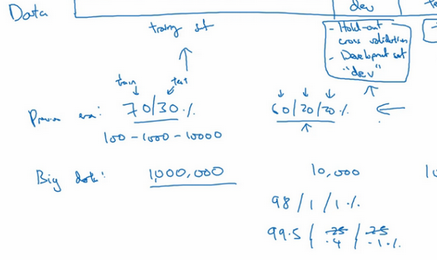 Data
training set
dev
- Hold-out
cross validation
- Development set
"dev"
train test
Previous era: 70/30% 60/20/20%
100-1000-10000
Big data: 1,000,000 10,000
98/1/1%
99.5/.25/.25
.4/.1%